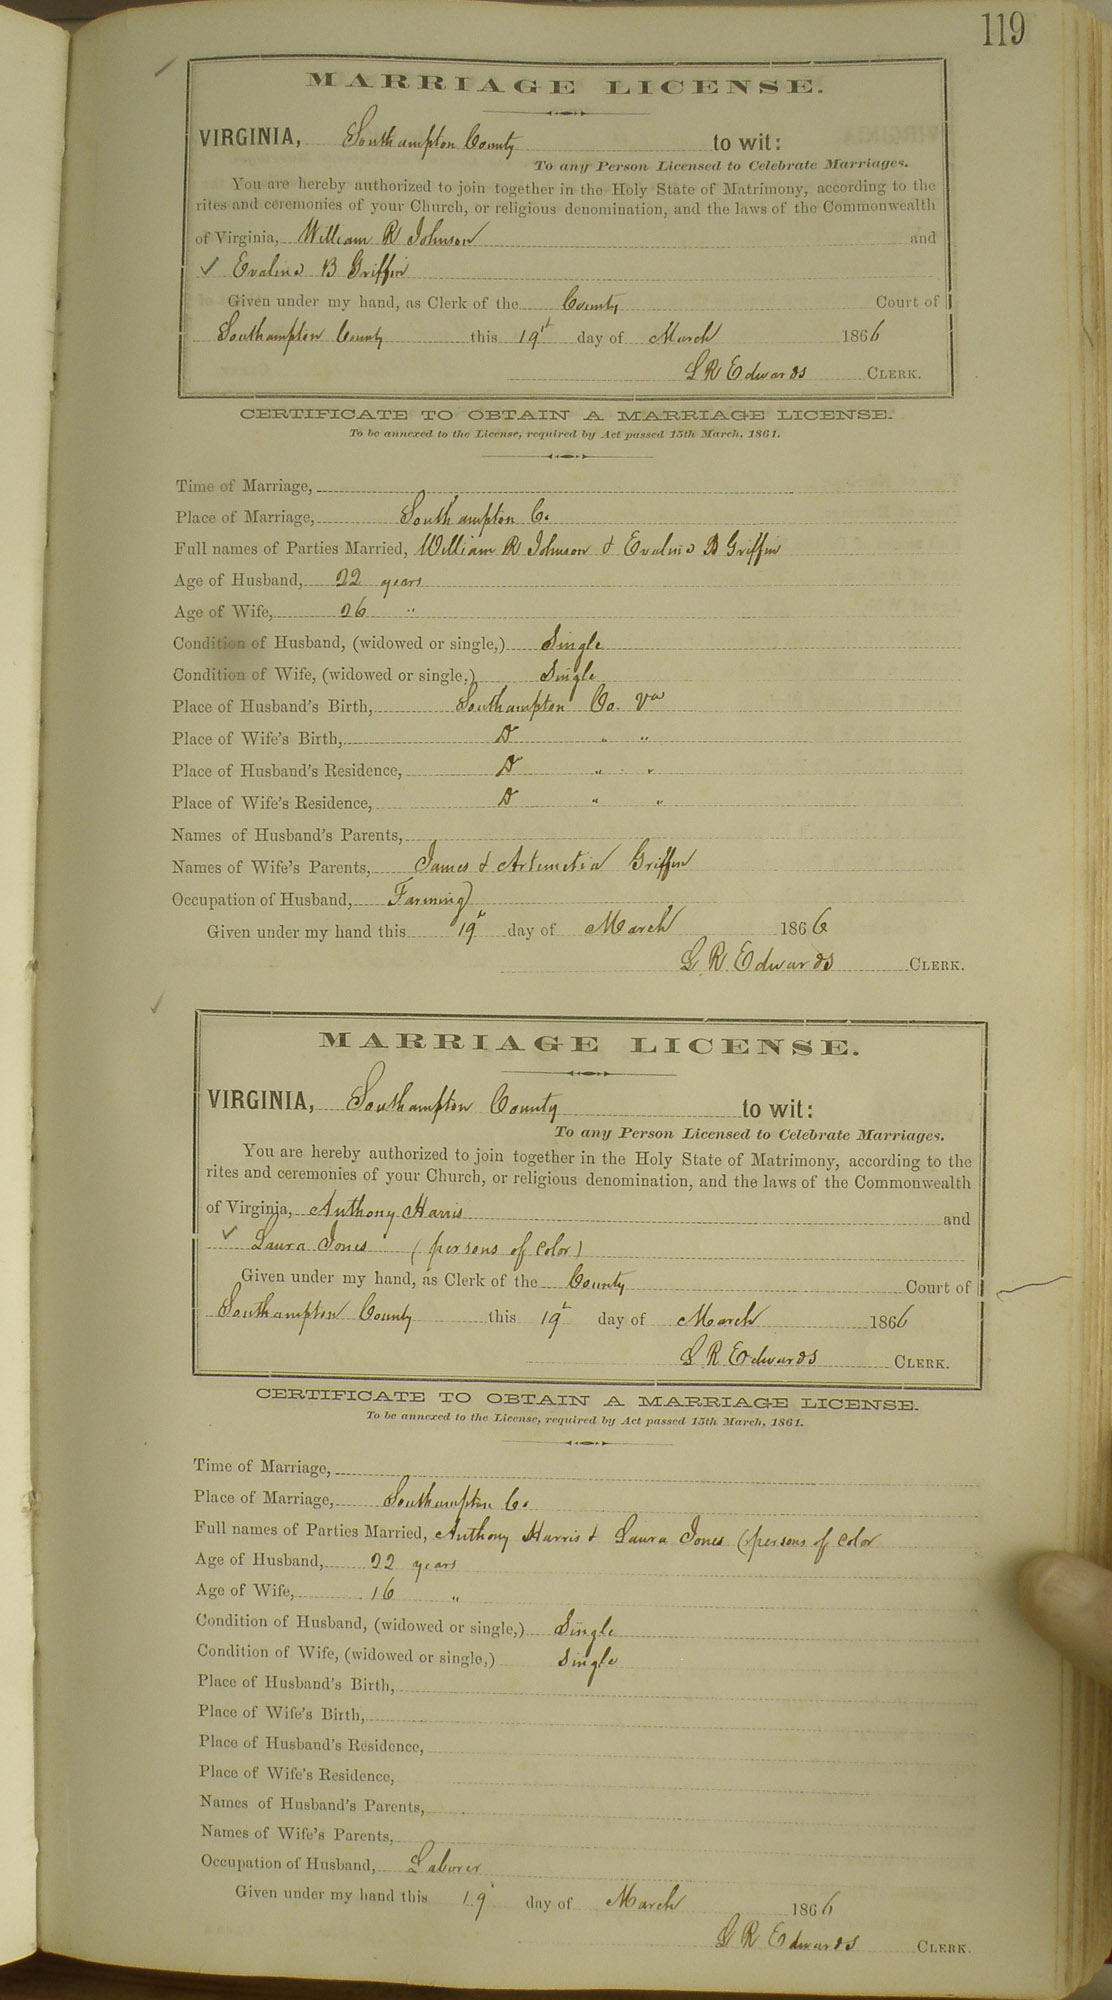 119
MARRIAGE LICENSE.
VIRGINIA, Southampton County to wit:
To any Person Licensed to Celebrate Marriages.
You are hereby authorized to join together in the Holy State of Matrimony, according to the
rites and ceremonies of your Church, or religious denomination, and the laws of the Commonwealth
of Virginia, William R Johnson and
✓ Evalina B Griffin
Given under my hand, as Clerk of the County Court of
Southampton County this 19th day of March 1866
L R Edwards CLERK.
CERTIFICATE TO OBTAIN A MARRIAGE LICENSE.
To be annexed to the License, required by Act passed 15th March, 1861.
Time of Marriage,
Place of Marriage, Southampton Co.
Full names of Parties Married, William R Johnson & Evalina B Griffin
Age of Husband, 22 years
Age of Wife, 26 "
Condition of Husband, (widowed or single,) Single
Condition of Wife, (widowed or single,) Single
Place of Husband's Birth, Southampton Co. Va
Place of Wife's Birth, Do " "
Place of Husband's Residence, Do " "
Place of Wife's Residence, Do " "
Names of Husband's Parents,
Names of Wife's Parents, James & Artemetia Griffin
Occupation of Husband, Farming
Given under my hand this 19th day of March 1866
L R Edwards CLERK.
MARRIAGE LICENSE.
VIRGINIA, Southampton County to wit:
To any Person Licensed to Celebrate Marriages.
You are hereby authorized to join together in the Holy State of Matrimony, according to the
rites and ceremonies of your Church, or religious denomination, and the laws of the Commonwealth
of Virginia, Anthony Harris and
✓ Laura Jones (persons of color)
Given under my hand, as Clerk of the County Court of
Southampton County this 19th day of March 1866
L R Edwards CLERK.
CERTIFICATE TO OBTAIN A MARRIAGE LICENSE.
To be annexed to the License, required by Act passed 15th March, 1861.
Time of Marriage,
Place of Marriage, Southampton Co.
Full names of Parties Married, Anthony Harris & Laura Jones (persons of color
Age of Husband, 22 years
Age of Wife, 16 "
Condition of Husband, (widowed or single,) Single
Condition of Wife, (widowed or single,) Single
Place of Husband's Birth,
Place of Wife's Birth,
Place of Husband's Residence,
Place of Wife's Residence,
Names of Husband's Parents,
Names of Wife's Parents,
Occupation of Husband, Laborer
Given under my hand this 19 day of March 1866
L R Edwards CLERK.